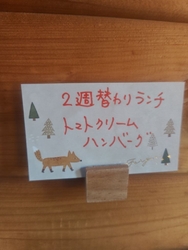 2週替わりランチ
トマトクリーム
ハンバーグ